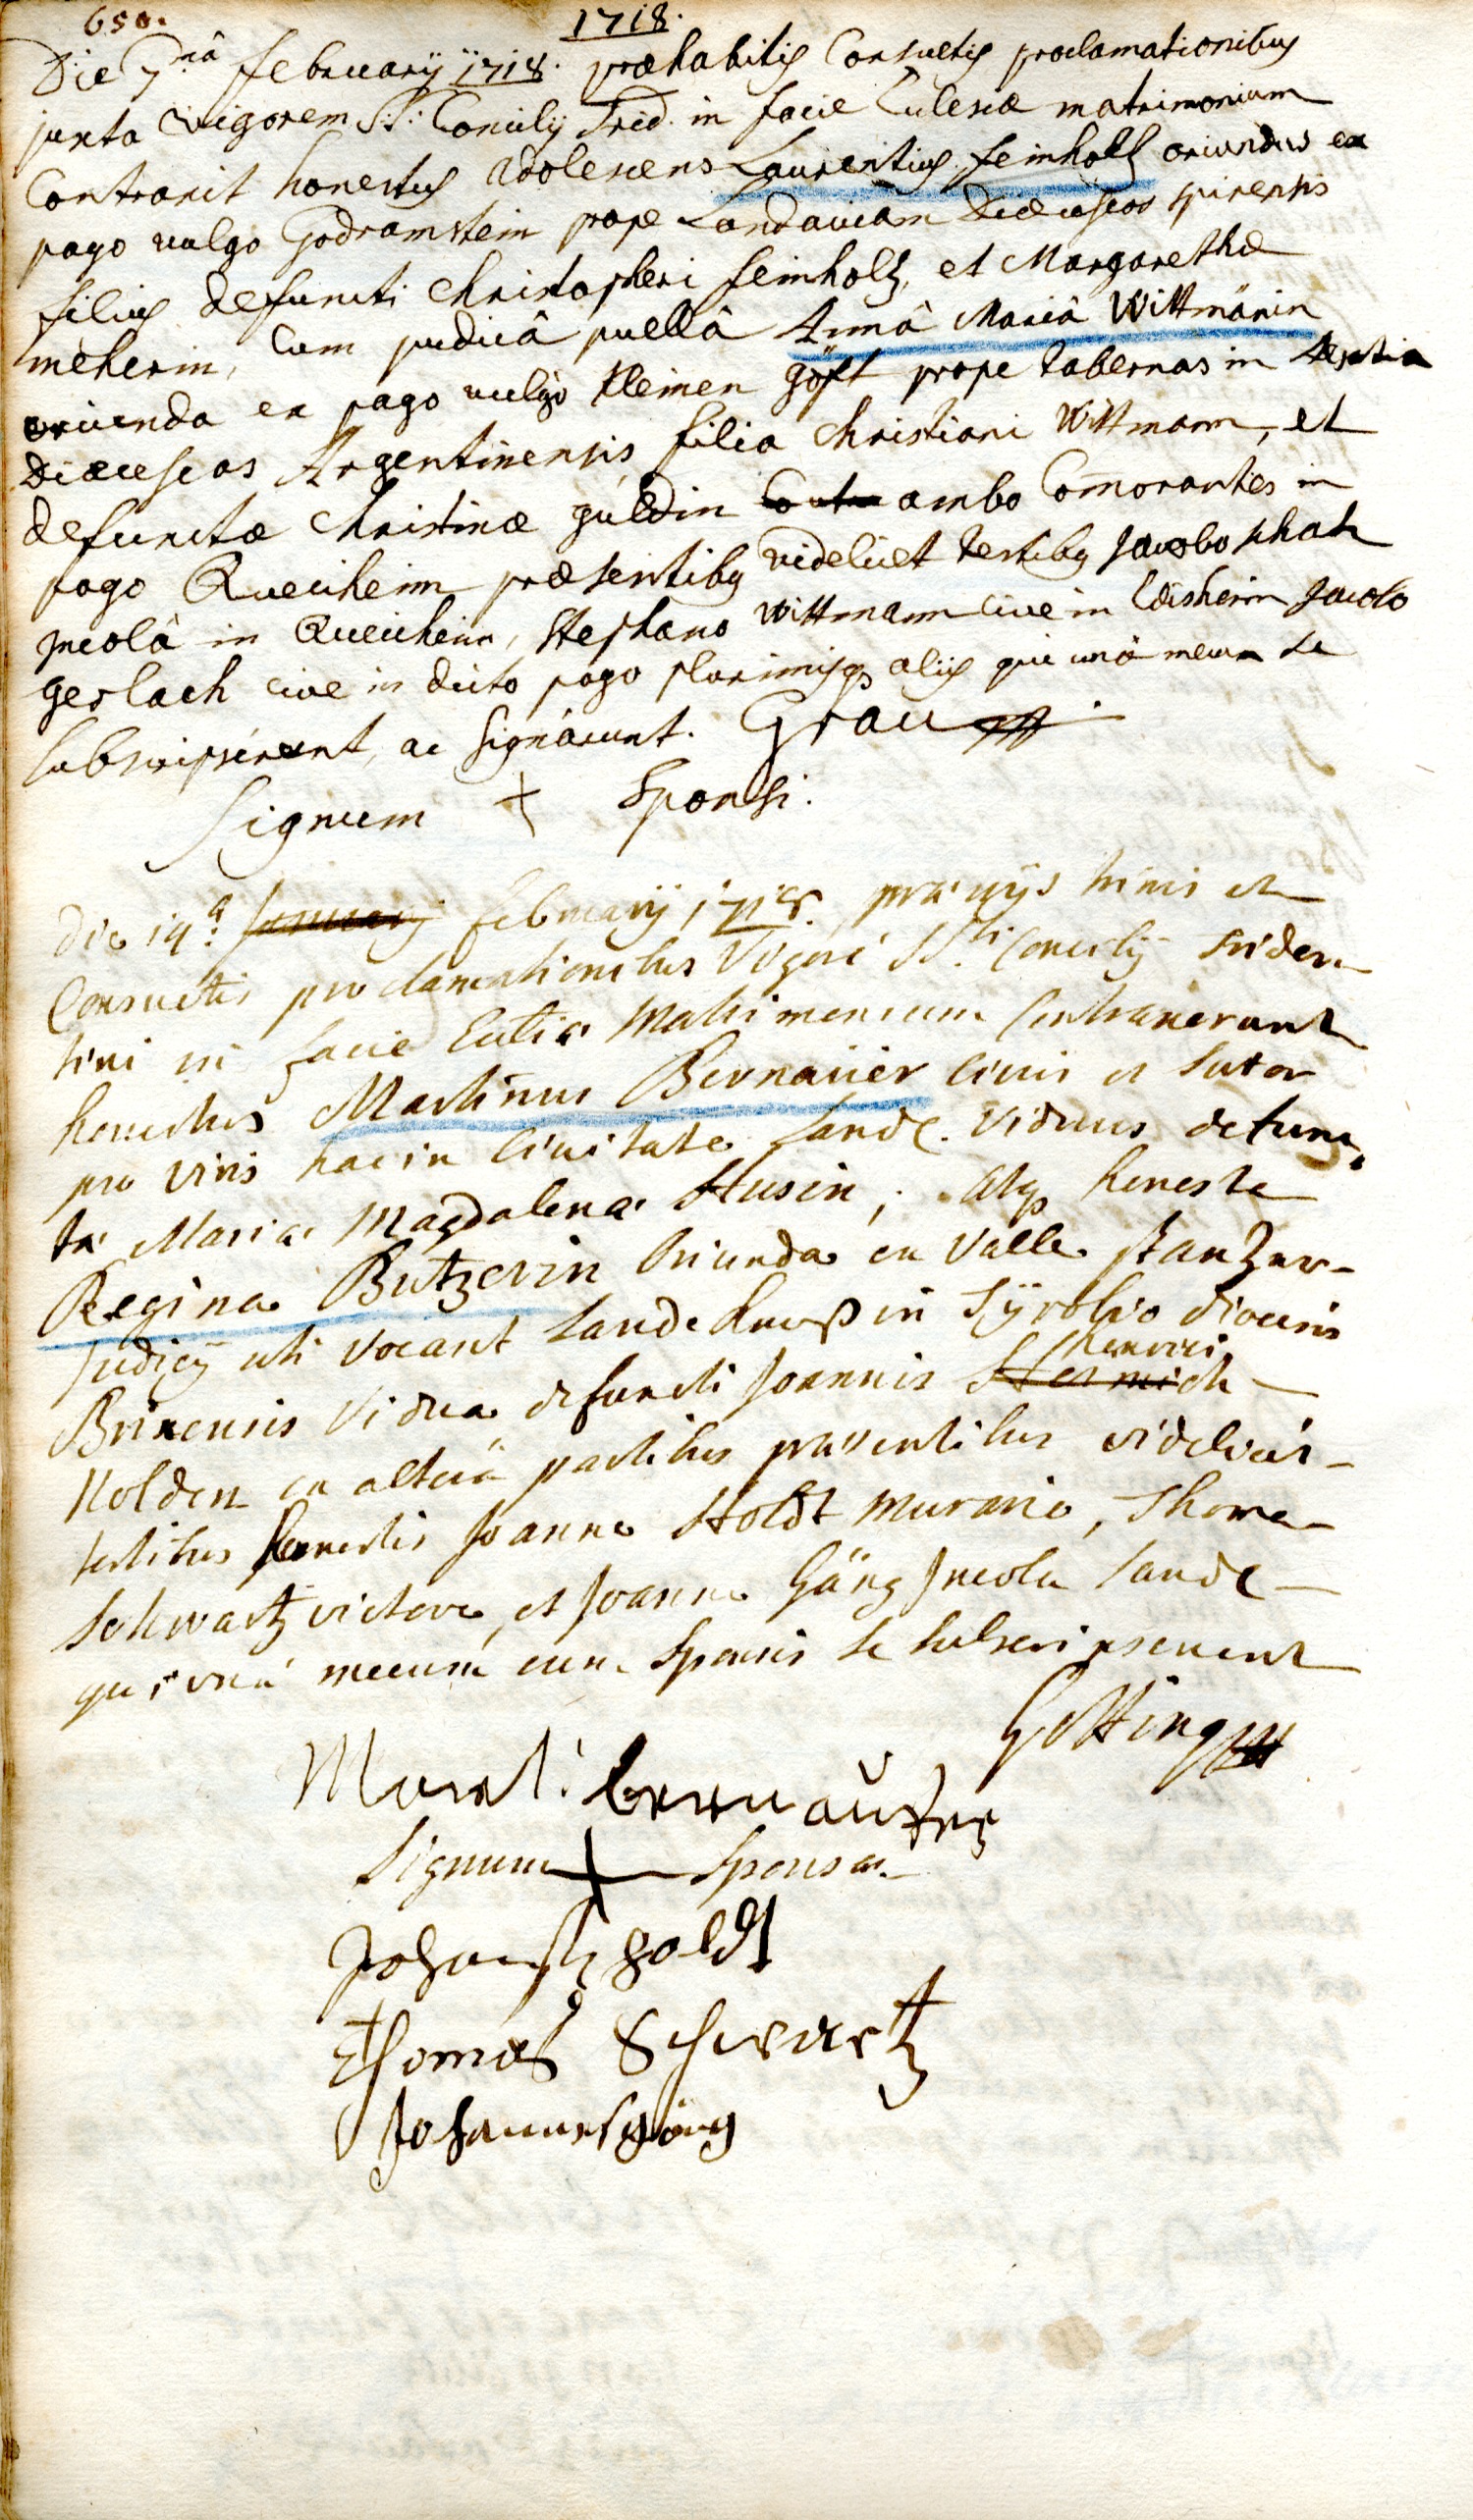 650. 1718.
Die 7mâ februarij 1718. præhabitis Consuetis proclamationibus
juxta vigorem SS: Concilij Trid. in facie Ecclesiæ matrimonium
Contraxit honestus adolescens Laurentius feinholtz oriundus ex
pago vulgo Godramstein prope Landaviam Diœceseos spirensis
filius defuncti Christopheri feinholtz, et Margarethæ
meherin, Cum pudicâ puellâ Annâ Mariâ Wittmänin
oriunda ex pago vulgo Kleinen göft prope tabernas in Alsatia
Diœceseos Argentinensis filia Christiani Wittmann, et
defunctæ Christinæ guldin ambo Comorantes in
pago Queicheim præsentibus videlicet testibus Jacobo schatz
Jncolâ in Queicheim, Stephano Wittmann cive in Edisheim Jacobo
gerlach cive in dicto pago plurimisqs alijs qui unâ mecum se
subscripserunt, ac signârunt. Grau
Signum + Sponsi.
Die 14a: January february 1718. prævijs trinis et
Consuetis proclamationibus Vigore SSti Concilij triden-
tini in facie Eccliæ Matrimonium Contraxerunt
honestus Martinus Bernauer Civis et Sutor
pro viris hac in Civitate Land. Viduus defunc-
tæ Mariæ Magdalenæ Husin, Atqs honesta
Regina Butzerin Oriunda ex Valle stanzer-
Judicij uti vocant Landeck in Tÿrolio diocesis
Brixensis Vidua defuncti Joannis Henrici
Holden ex alterâ partibus præsentibus videlicet
testibus honestis Joanne Holdt murario, Thoma
Schwartz victore, et Joanne Gäng Jncola Land-
qui unâ mecum cum Sponsis se subscripserunt
Gotting
Marti bernauer
Signum + Sponsæ
Johannes holdt
Thomas Schwartz
Johannes göng